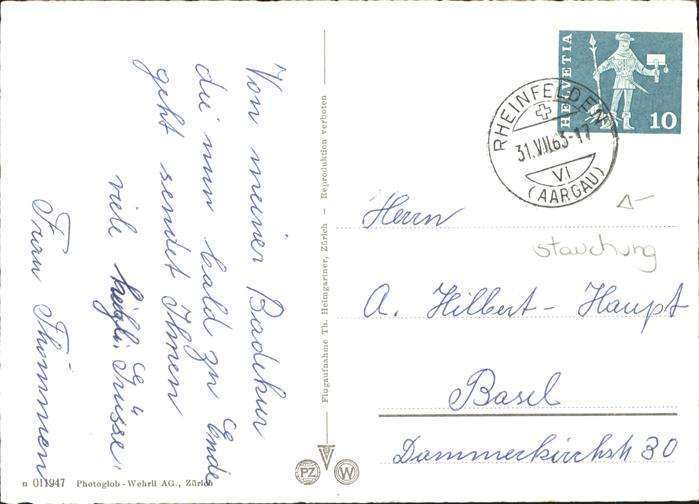 Von meiner Badekur
die nun bald zu Ende
geht sendet Ihnen
viele herzli. Grüsse.
Frau Thommen
n 011947 Photoglob-Wehrli AG., Zürich
Flugaufnahme Th. Heimgartner, Zürich - Reproduktion verboten
PZ W
HELVETIA
10
RHEINFELDEN
31.VII.63-17
VI
(AARGAU)
Herrn
Stauchung
A. Hilbert-Haupt
Basel
Dammerkirchstr 30